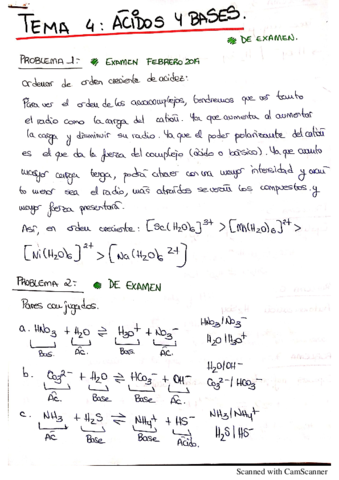 TEMA 4: ÁCIDOS Y BASES.
* DE EXAMEN.
PROBLEMA 1: * EXAMEN FEBRERO 2019
Ordenar de orden creciente de acidez:
Para ver el orden de los acuocomplejos, tendremos que ver tanto
el radio como la carga del catión. Ya que aumenta al aumentar
la carga y disminuir su radio. Ya que el poder polarizante del catión
es el que da la fuerza del complejo (ácido o básico). Ya que cuanto
mayor carga tenga, podrá atraer con una mayor intensidad y cuan
to menor sea el radio, más atraídos se verán los compuestos y
mayor fuerza presentará.
Así, en orden creciente: [Sc(H₂O)₆]³⁺ > [Mn(H₂O)₆]²⁺ >
[Ni(H₂O)₆]²⁺ > [Na(H₂O)₆²⁺]
PROBLEMA 2: * DE EXAMEN
Pares conjugados.
a. HNO₃ + H₂O ⇌ H₃O⁺ + NO₃⁻ HNO₃/NO₃⁻
Bas. Ác. Bas. Ác. H₂O/H₃O⁺
b. CO₃²⁻ + H₂O ⇌ HCO₃⁻ + OH⁻ H₂O/OH⁻
Ác. Base Ác. Base CO₃²⁻/HCO₃⁻
c. NH₃ + H₂S ⇌ NH₄⁺ + HS⁻ NH₃/NH₄⁺
Ác Base Base Ácido. H₂S/HS⁻
Scanned with CamScanner